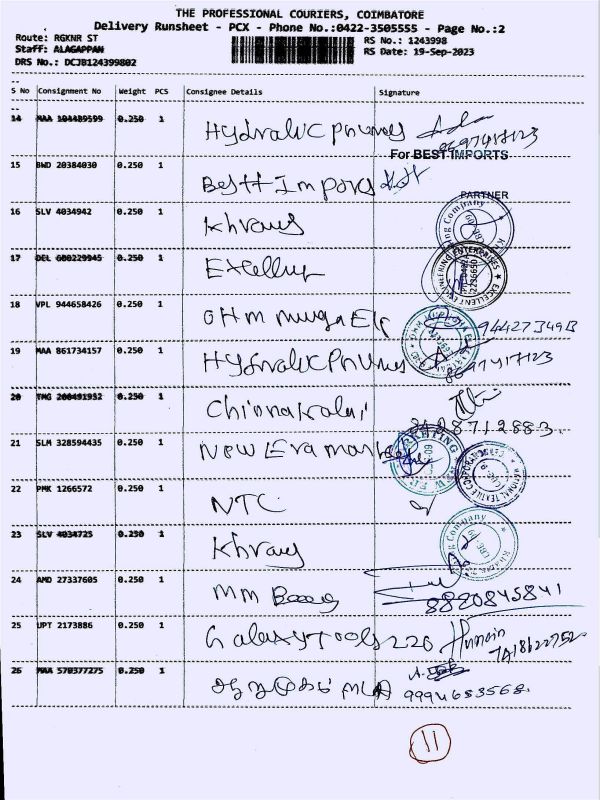 THE PROFESSIONAL COURIERS, COIMBATORE
Delivery Runsheet - PCX - Phone No.:0422-3505555 - Page No.:2
Route: RGKNR ST
RS No.: 1243998
Staff: ALAGAPPAN
RS Date: 19-Sep-2023
DRS No.: DCJB124399802
S No Consignment No Weight PCS Consignee Details Signature
14 MAA 104489599 0.250 1 Hydraulic
For BEST IMPORTS
15 BWD 20384030 0.250 1 Bestt Imports
PARTNER
16 SLV 4034942 0.250 1 Khraus
17 DEL 600229945 0.250 1
18 VPL 944658426 0.250 1 OHM
19 MAA 861734157 0.250 1 Hydralic 8697417123
20 TMG 200491932 0.250 1 Chinnakalai
8712883
21 SLM 328594435 0.250 1 New Era
22 PMK 1266572 0.250 1 NTC
23 SLV 4034725 0.250 1 Khraus
24 AMD 27337605 0.250 1 MM
8820845841
25 UPT 2173886 0.250 1 Galaxy Tools 226
26 MAA 570377275 0.250 1
9994683568
11